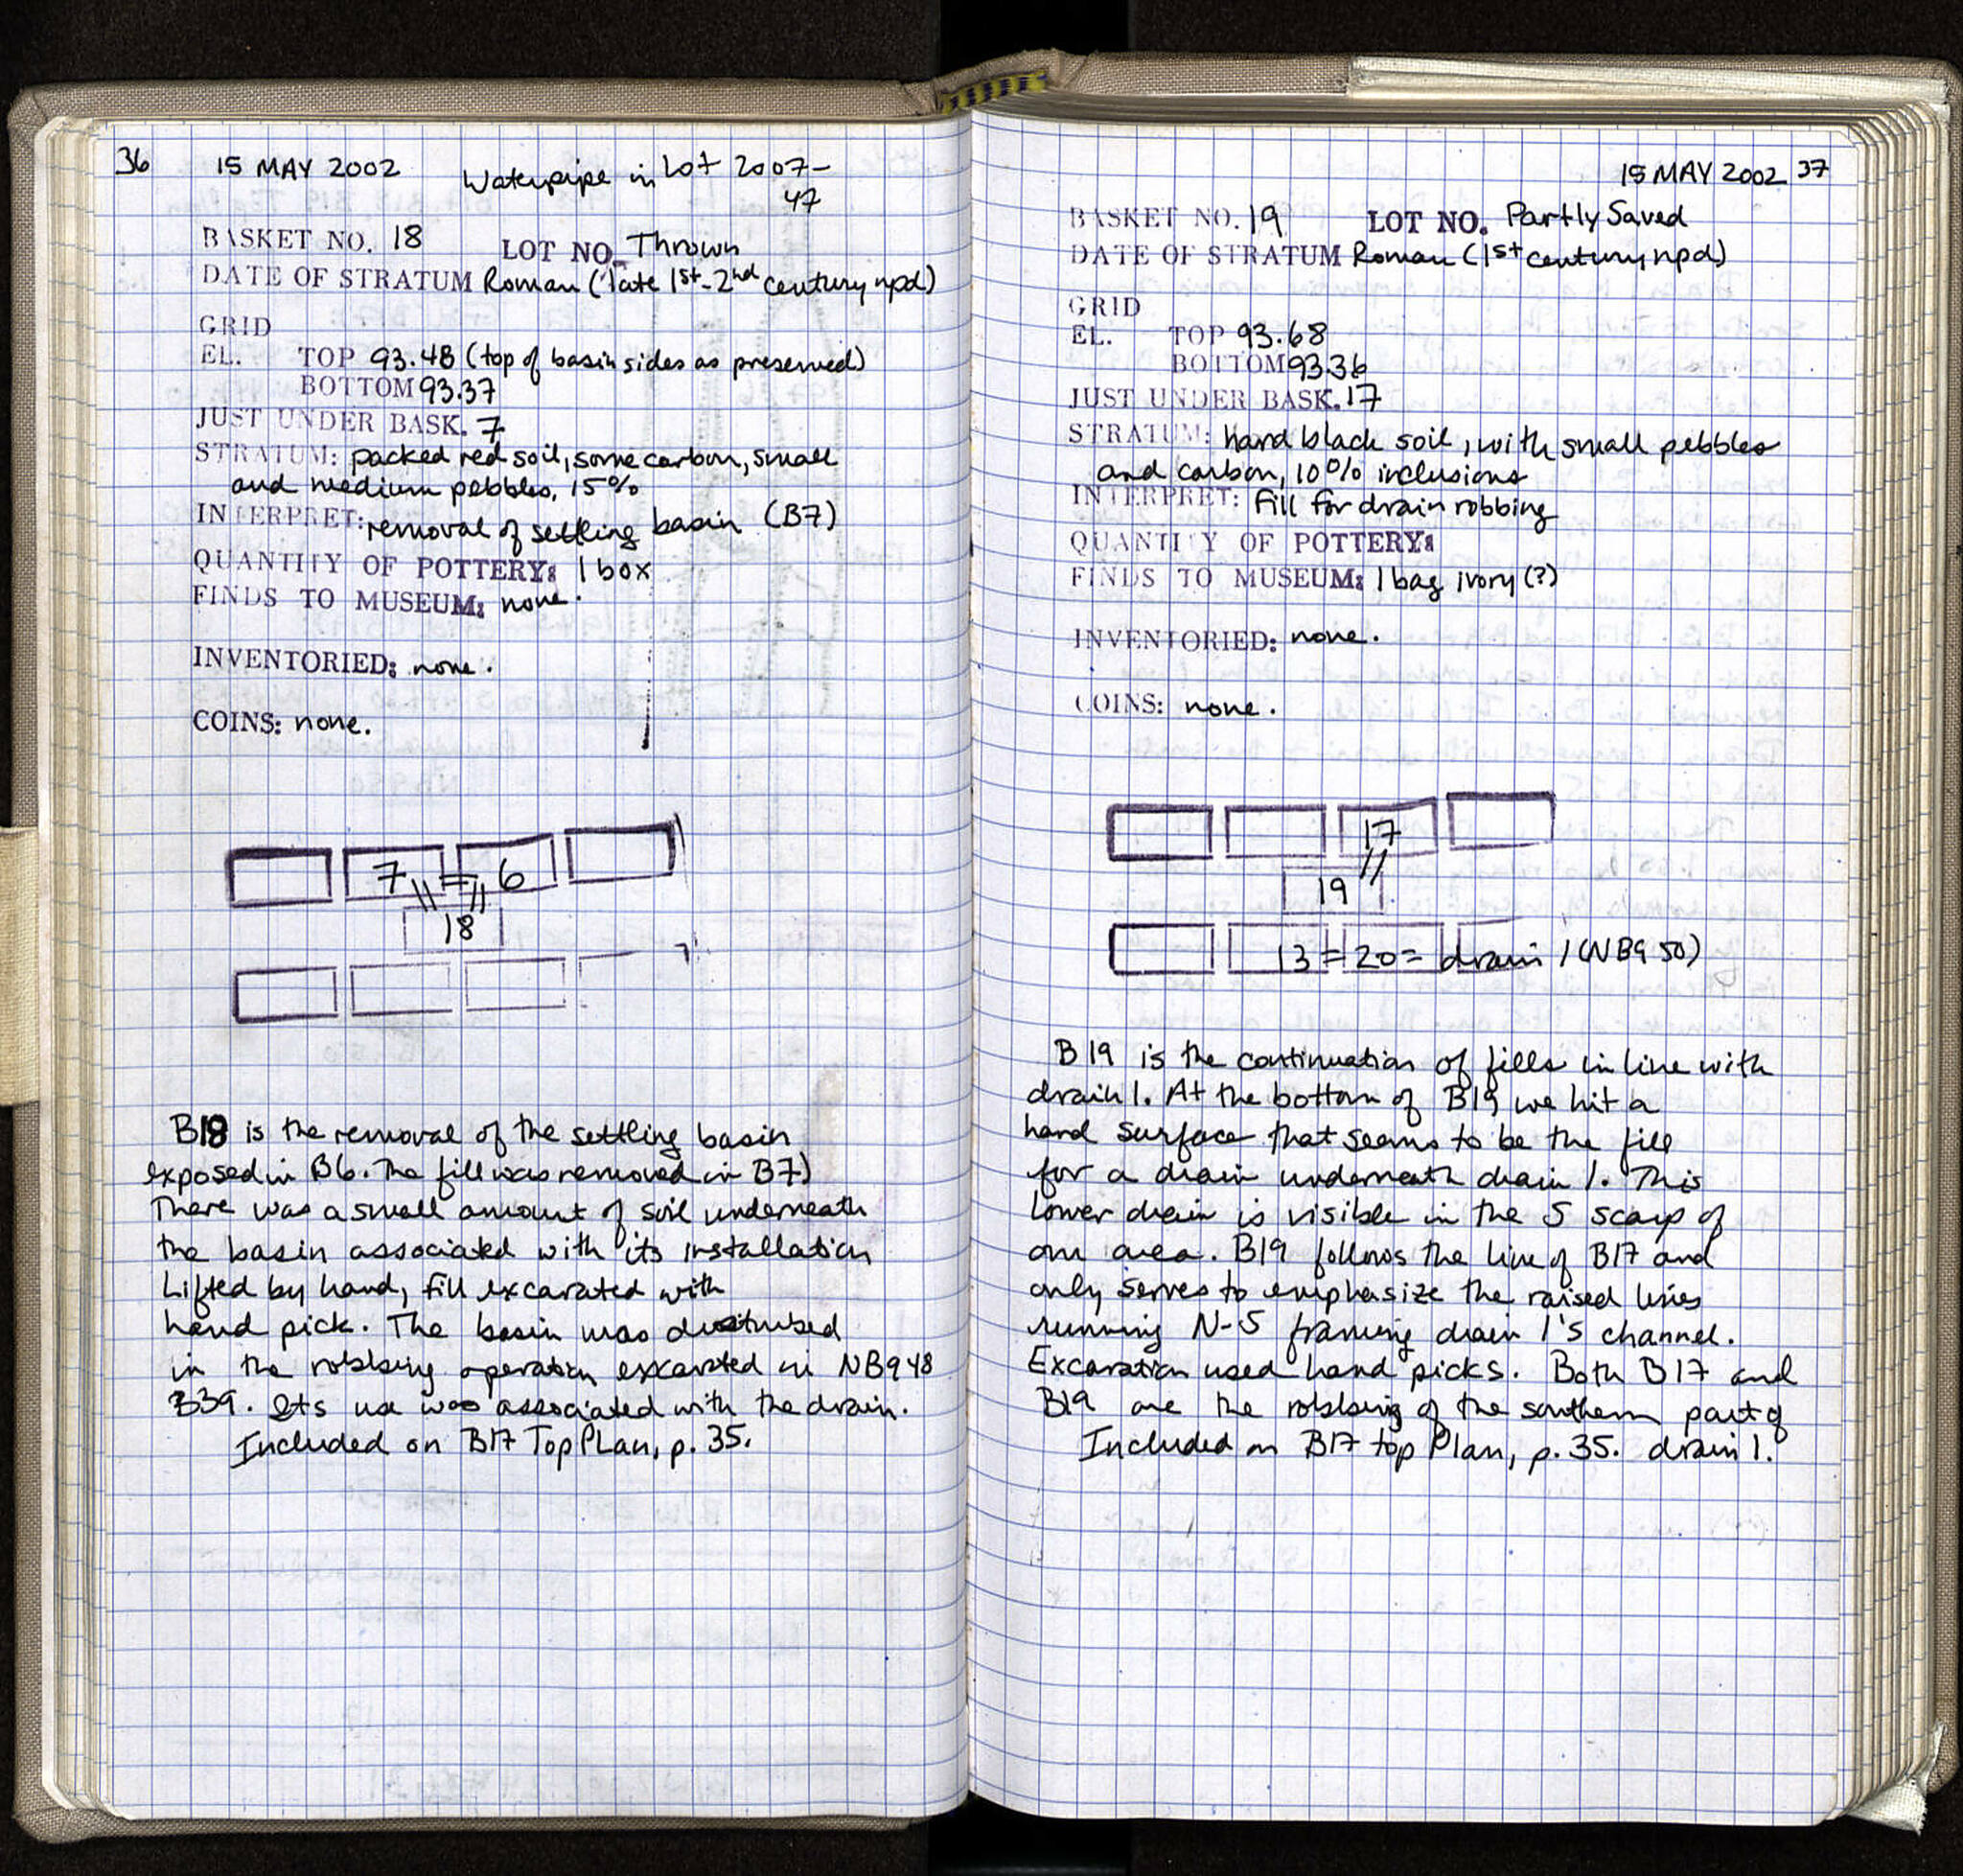 36 15 MAY 2002 Waterpipe in Lot 2007-
47
BASKET NO. 18 LOT NO. Thrown
DATE OF STRATUM Roman (late 1st-2nd century npd)
GRID
EL. TOP 93.48 (top of basin sides as preserved)
BOTTOM 93.37
JUST UNDER BASK. 7
STRATUM: packed red soil, some carbon, small
and medium pebbles, 15%
INTERPRET: removal of settling basin (B7)
QUANTITY OF POTTERY: 1 box
FINDS TO MUSEUM: none.
INVENTORIED: none.
COINS: none.
7 = 6
18
B18 is the removal of the settling basin
exposed in B6. The fill was removed in B7)
There was a small amount of soil underneath
the basin associated with its installation
Lifted by hand, fill excavated with
hand pick. The basin was disturbed
in the robbing operation excavated in NB948
B39. Its use was associated with the drain.
Included on B17 Top Plan, p. 35.
15 MAY 2002 37
BASKET NO. 19 LOT NO. Partly Saved
DATE OF STRATUM Roman (1st century npd)
GRID
EL. TOP 93.68
BOTTOM 93.36
JUST UNDER BASK. 17
STRATUM: hard black soil, with small pebbles
and carbon, 10% inclusions
INTERPRET: Fill for drain robbing
QUANTITY OF POTTERY:
FINDS TO MUSEUM: 1 bag ivory (?)
INVENTORIED: none.
COINS: none.
17
19
13 = 20 = drain 1 (NB950)
B19 is the continuation of fills in line with
drain 1. At the bottom of B19 we hit a
hard surface that seems to be the fill
for a drain underneath drain 1. This
lower drain is visible in the S scarp of
our area. B19 follows the line of B17 and
only serves to emphasize the raised lines
running N-S framing drain 1's channel.
Excavation used hand picks. Both B17 and
B19 are the robbing of the southern part of
Included on B17 top Plan, p. 35. drain 1.